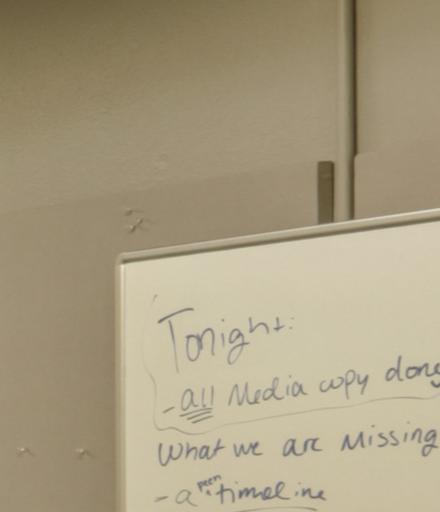 Tonight:
- all Media copy done
What we are Missing
- a timeline